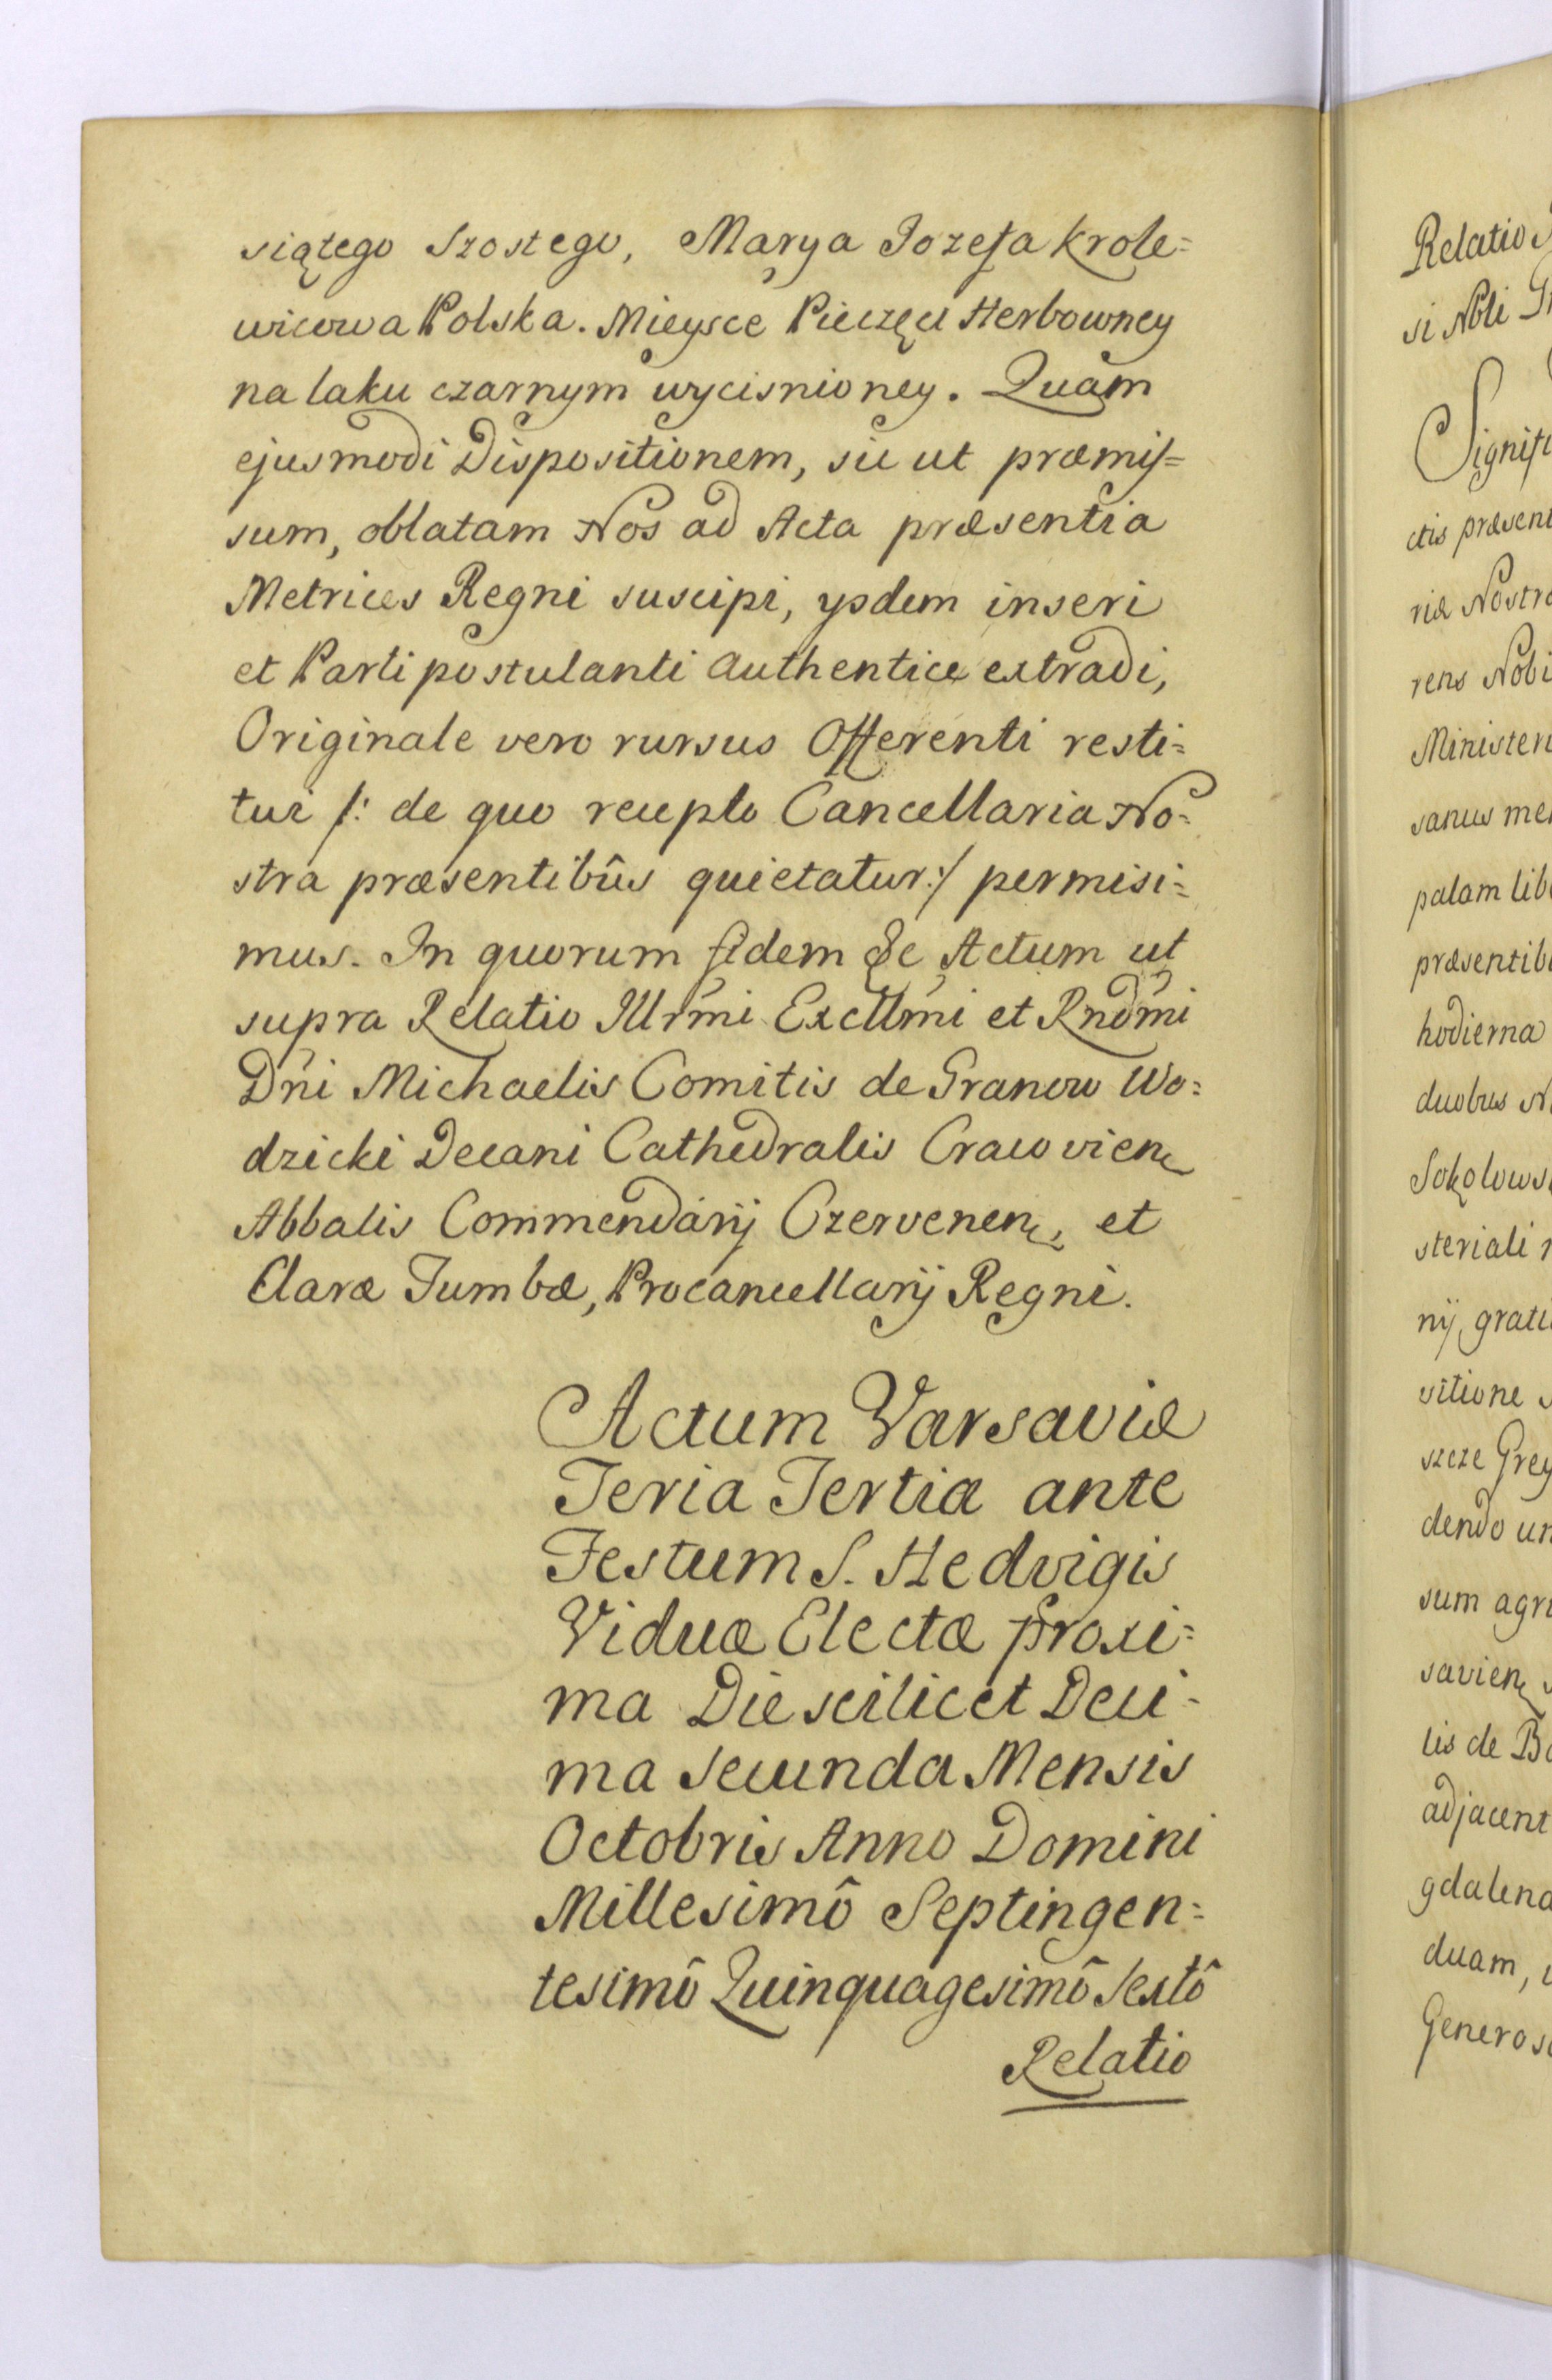 siątego Szostego, Marya Jozefa Krole=
wicowa Polska. Mieysce Pieczęci Herbowney
na laku czarnym wycisnioney. Quam
ejusmodi Dispositionem, sic ut præmis=
sum, oblatam Nos ad Acta præsentia
Metrices Regni suscipi, ysdem inseri
et Parti postulanti authentice extradi,
Originale vero rursus Offerenti resti=
tui /: de quo recepto Cancellaria No=
stra præsentibûs quietatur :/ permisi=
mus. In quorum fidem &c Actum ut
supra Relatio Illrmi Excllmi et Rndmi
Dni Michaelis Comitis de Granow Wo=
dzicki Decani Cathedralis Cracovien
Abbatis Commendarij Czervenen, et
Claræ Tumbæ, Procancellarij Regni.
Actum Varsaviæ
Feria Tertia ante
Festum S. Hedvigis
Viduæ Electæ proxi=
ma Die scilicet Deci=
ma Secunda Mensis
Octobris Anno Domini
Millesimô Septingen=
tesimô Quinquagesimô Sextô
Relatio
Relatio
si Nbli
Signifi
ctis præsent
riæ Nostra
rens Nobi
Ministeri
sanus me
palam lib
præsentib
hodierna
duobus N
Sokolows
steriali
nij grati
sitione
szcze Grey
dendo un
sum agr
savien
lis de B
adjacent
gdalena
duam,
Generos